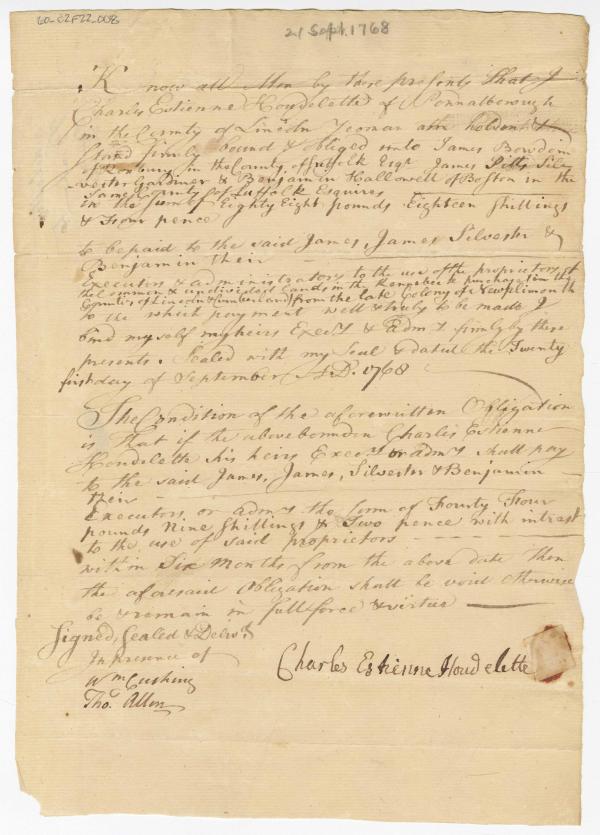 60-E2F22_008
21 Sept. 1768
Know all Men by these presents That I
Charles Estienne Houdelette of Pownalborough
in the County of Lincoln Yeoman am holden &
Stand firmly bound & obliged unto James Bowdoin
of in the County of Suffolk Esqr James Pitts Sil-
-vester Gardiner & Benjamin Hallowell of Boston in the
Same County of Suffolk Esquires
in the Sum of Eighty Eight pounds Eighteen Shillings
& Four pence
to be paid to the said James, James, Silvester &
Benjamin their
Executors & administrators to the use of the proprietors of
the Common & undivided Lands in the Kennebeck purchase
Counties of Lincoln & Cumberland from the late Colony of New plimouth
to the which payment well & truly to be made I
bind my self my heirs Execrs & admrs firmly by these
presents. Sealed with my Seal & dated the Twenty
first day of September A.D. 1768
The Condition of the aforewritten Obligation
is that if the abovebounden Charles Estienne
Houdeleth his heirs Execrs or admrs shall pay
to the said James, James, Silvester & Benjamin
their
Executors or admrs the Sum of Fourty Four
pounds Nine Shillings & Two pence with intrest
to the use of said proprietors
within Six Months from the above date then
the aforesaid Obligation shall be void otherwise
be & remain in full force & virtue
Signed, Sealed & Delivd
In presence of
Wm Cushing
Tho. Allen
Charles Estienne Houdelette